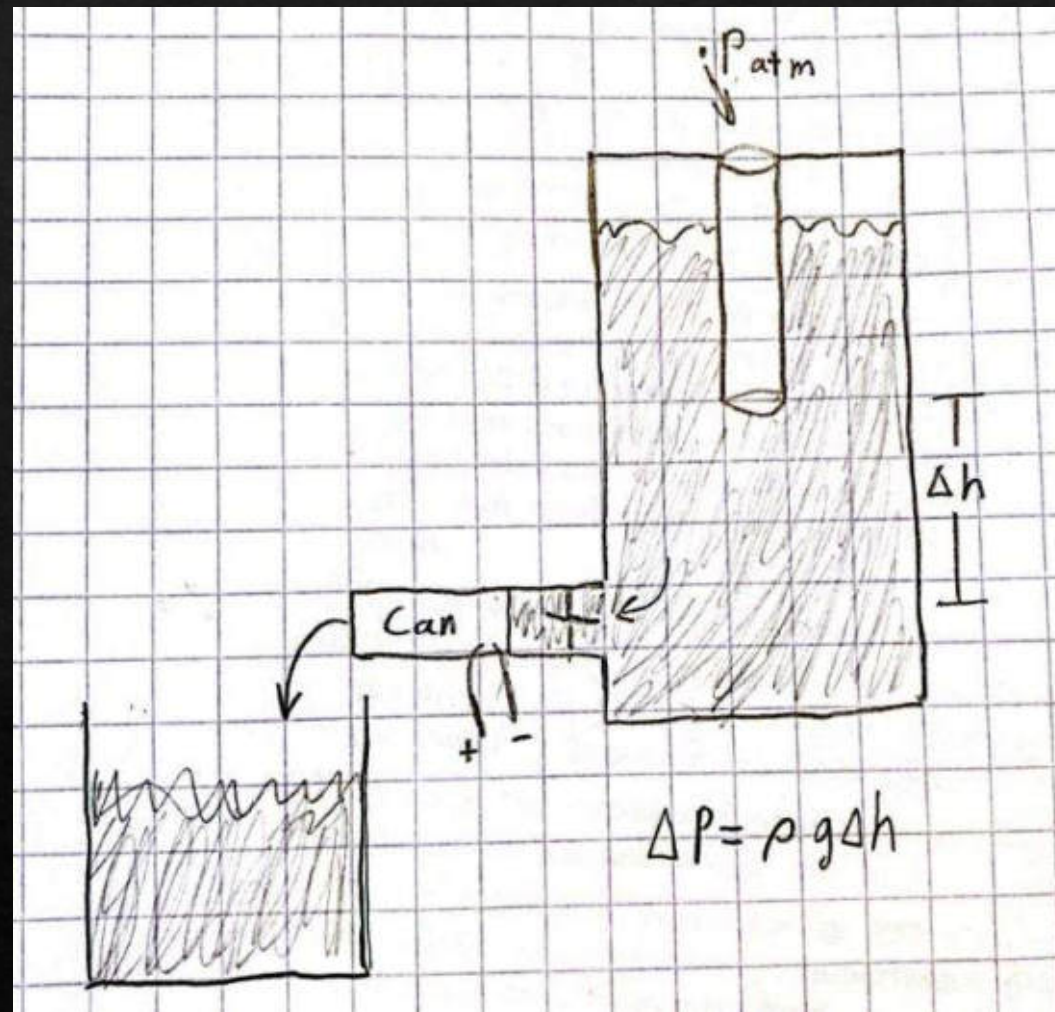 Patm
Δh
Can
+ -
ΔP = ρgΔh